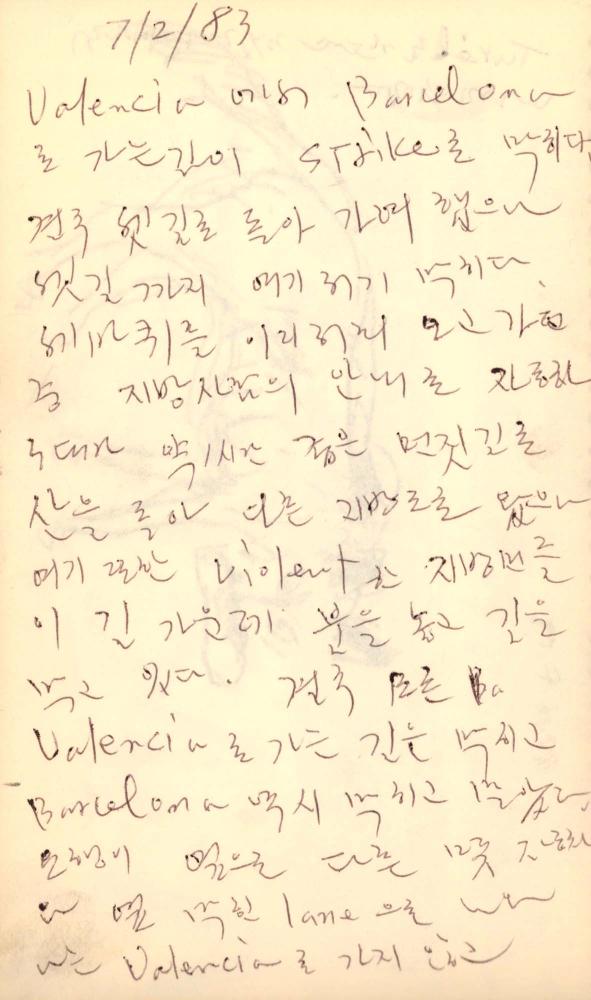 7/2/83
Valencia 에서 Barcelona
로 가는길이 strike로 막히다
결국 옛길로 돌아 가려 했으나
옛길 까지 여기 저기 막히다.
헤바퀴를 이리저리 오고가던
중 지방사람의 안내로 자동차
수대가 약 1시간 좁은 먼짓길로
산을 돌아 다른 지방도로로 왔으나
여기 또한 violent 한 지방민들
이 길 가운데 불을 놓고 길을
막고 있다. 결국 모든
Valencia 로 가는 길은 막히고
Barcelona 역시 막히고 말았다.
요행이 옆으로 다른 몇 자동차
와 옆 막힌 lane 으로 나와
나는 Valencia 로 가지 않고